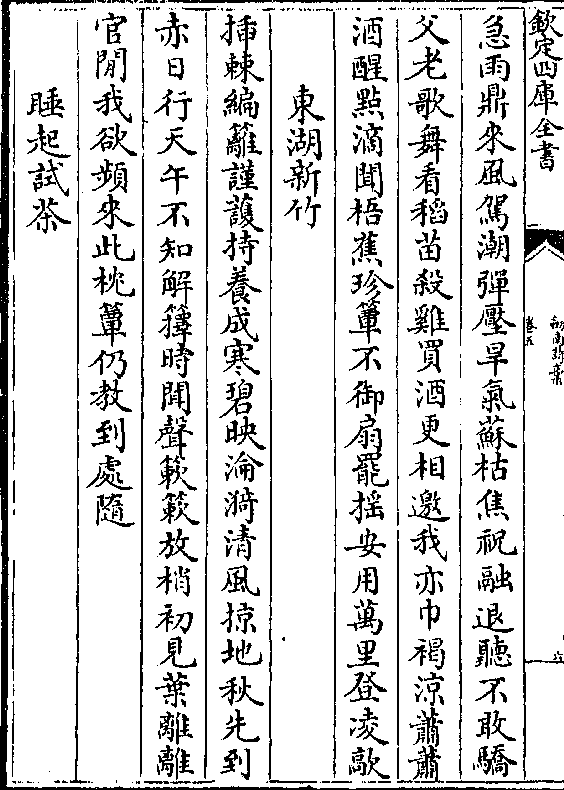 欽定四庫全書
卷五
急雨鼎来風駕潮彈壓旱氣蘇枯焦祝融退聽不敢驕
父老歌舞看稻苗殺雞買酒更相邀我亦巾褐涼蕭蕭
酒醒點滴聞梧蕉珍簟不御扇罷揺安用萬里登凌歊
東湖新竹
插棘編籬謹護持養成寒碧映淪漪清風掠地秋先到
赤日行天午不知解籜時聞聲簌簌放梢初見葉離離
官閒我欲頻来此枕簟仍教到處隨
睡起試茶